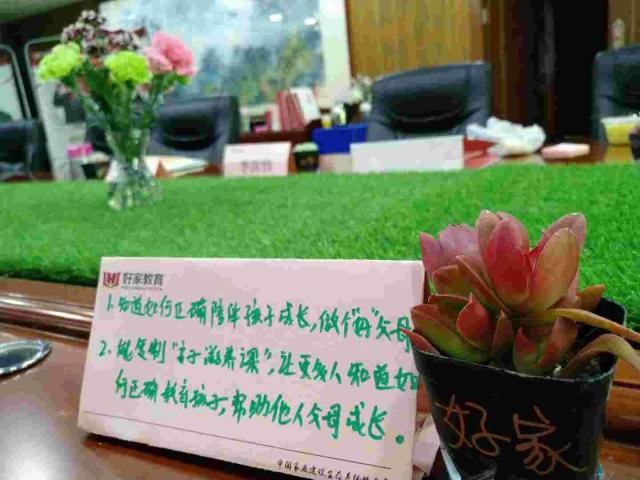 好家教育
1. 知道如何正确陪伴孩子成长，做个"好"父母
2. 能复制"亲子滋养课"，让更多人知道如
何正确教育孩子，帮助他人父母成长。
好家